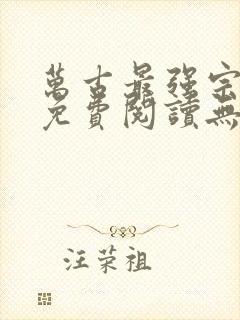 萬古最強宗
免費閱讀無
汪荣祖